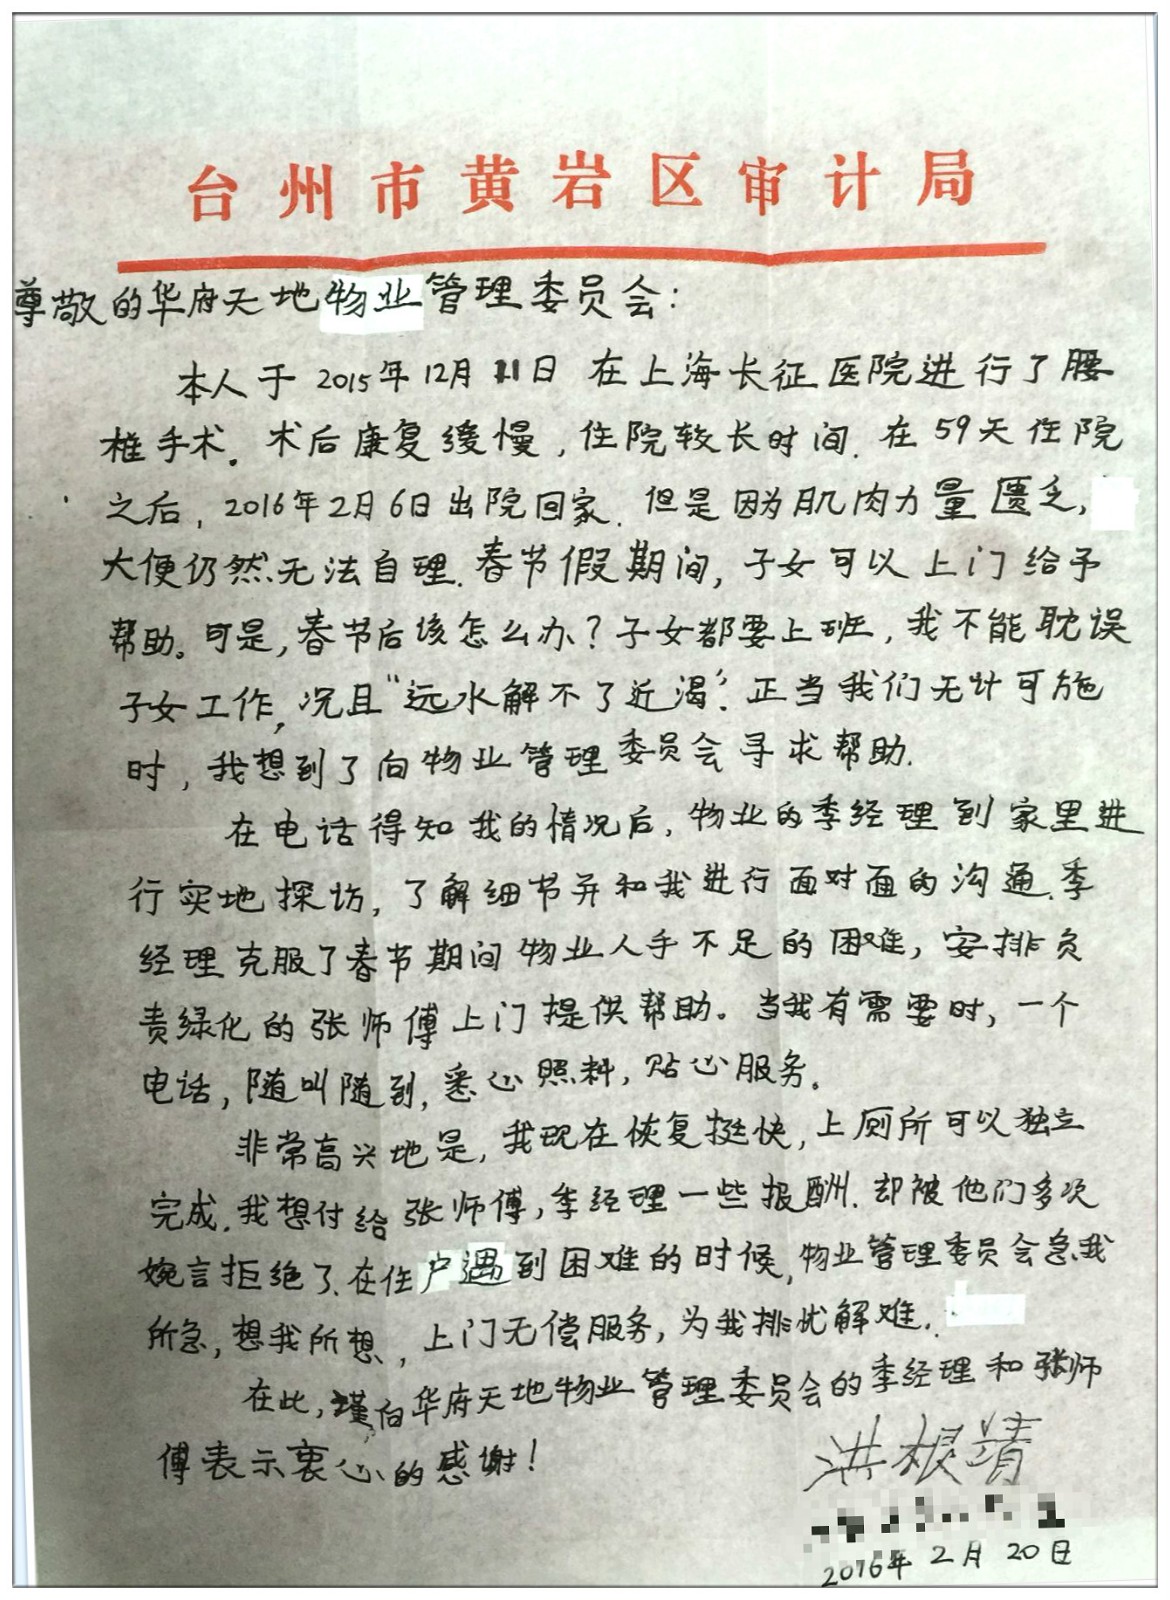 台州市黄岩区审计局
尊敬的华府天地物业管理委员会：
本人于2015年12月11日在上海长征医院进行了腰
椎手术。术后康复缓慢，住院较长时间.在59天住院
之后，2016年2月6日出院回家.但是因为肌肉力量匮乏，
大便仍然无法自理.春节假期间，子女可以上门给予
帮助。可是，春节后该怎么办？子女都要上班，我不能耽误
子女工作，况且“远水解不了近渴”.正当我们无计可施
时，我想到了向物业管理委员会寻求帮助.
在电话得知我的情况后，物业的季经理到家里进
行实地探访，了解细节并和我进行面对面的沟通.季
经理克服了春节期间物业人手不足的困难，安排负
责绿化的张师傅上门提供帮助。当我有需要时，一个
电话，随叫随到，悉心照料，贴心服务。
非常高兴地是，我现在恢复挺快，上厕所可以独立
完成.我想付给张师傅，季经理一些报酬.却被他们多次
婉言拒绝了.在住户遇到困难的时候，物业管理委员会急我
所急，想我所想，上门无偿服务，为我排忧解难.
在此，谨向华府天地物业管理委员会的季经理和张师
傅表示衷心的感谢！
洪根靖
2016年2月20日